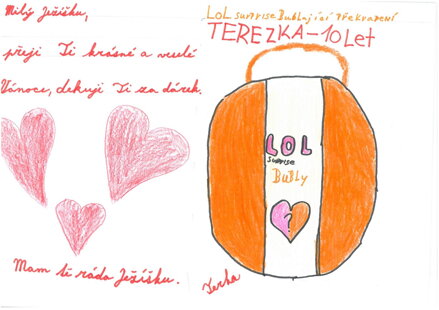 Milý Ježíšku,
přeji Ti krásné a veselé
Vánoce, dekuji Ti za dárek.
Mam tě ráda Ježíšku.
LOL surprise Bublající překvapení
TEREZKA-10 let
LOL
surprise
BuBLy
?
Terka